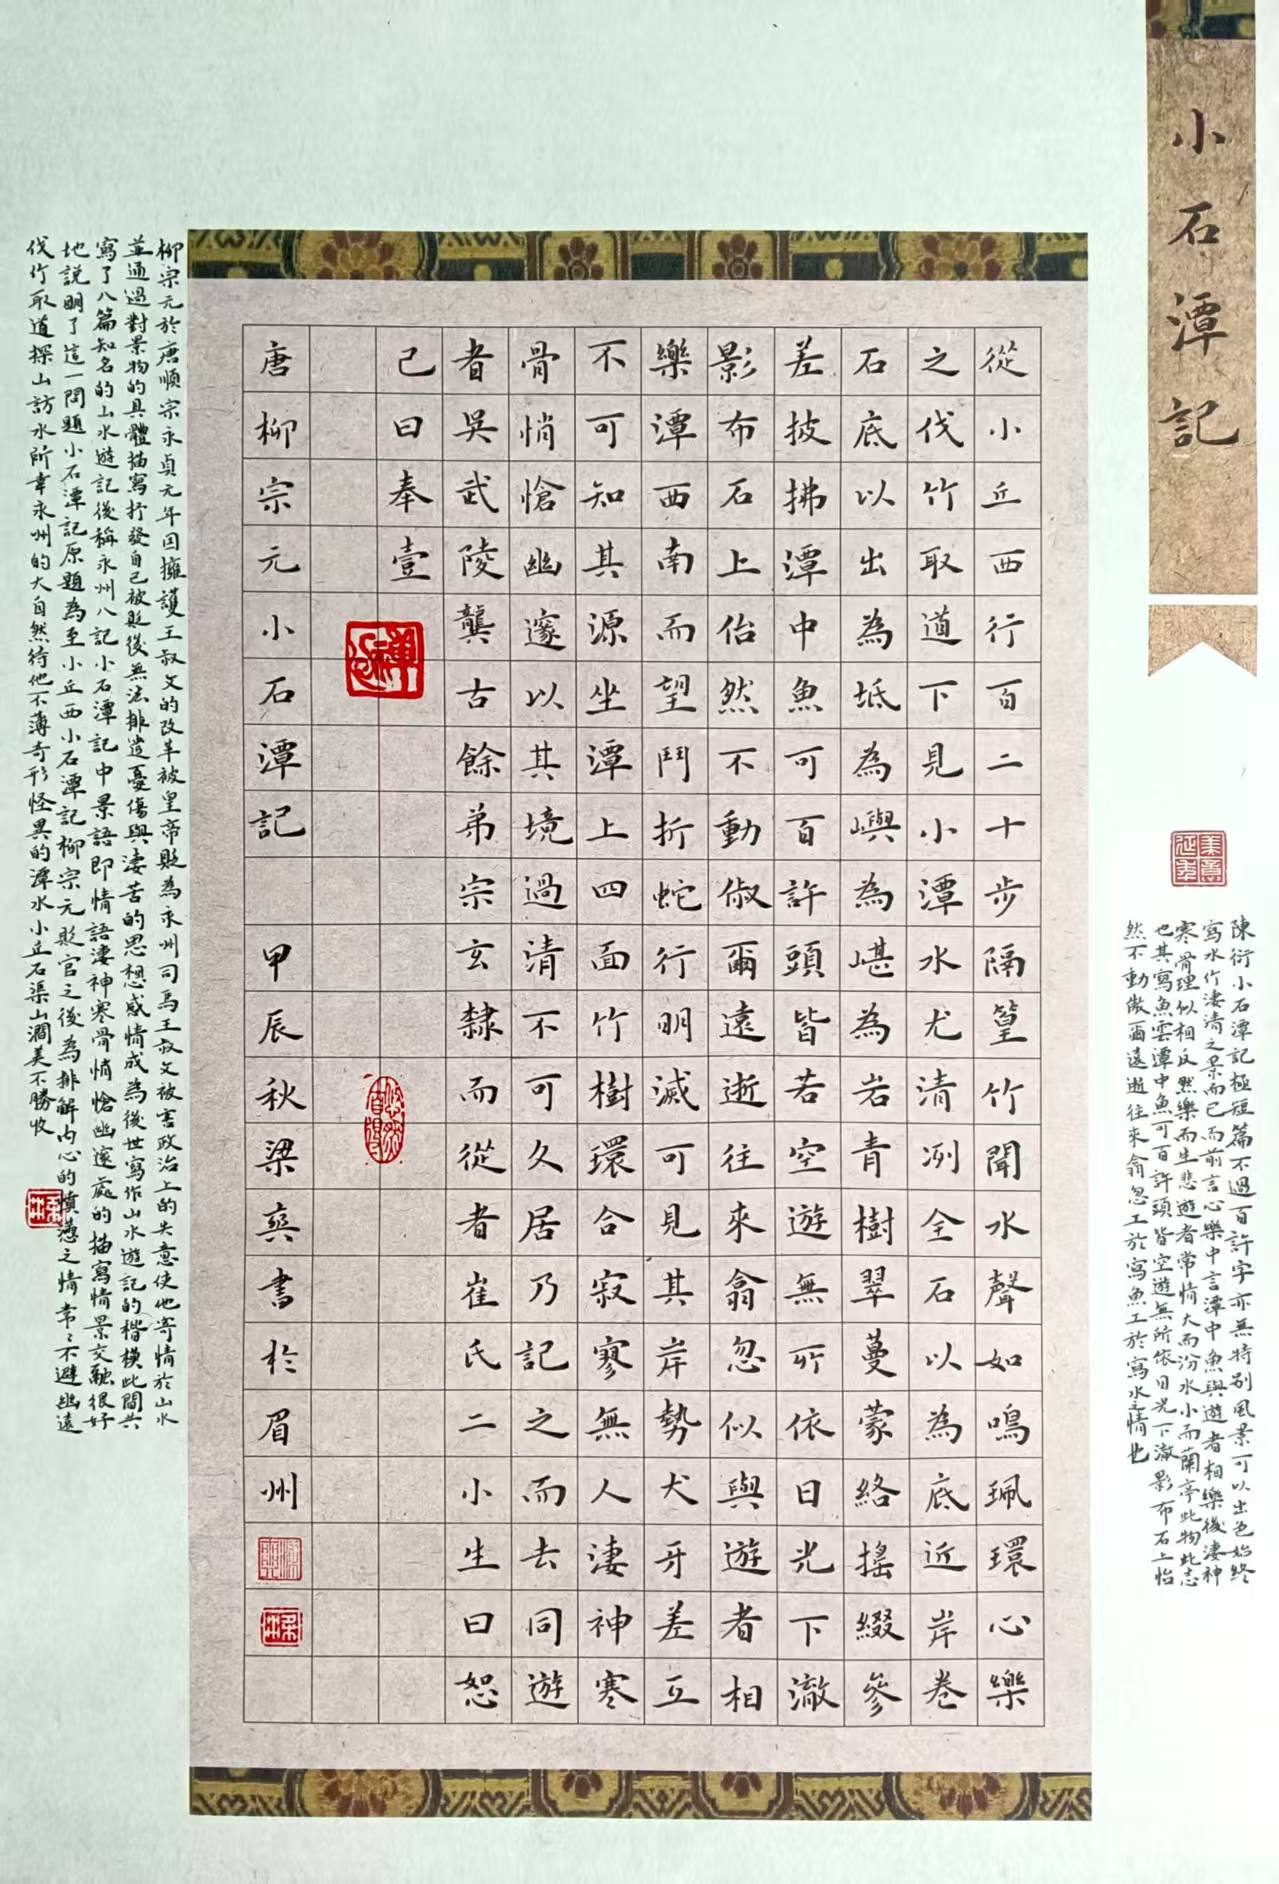 小石潭記
陳衍小石潭記極短篇不過百許字亦無特別風景可以出色始終
寫水竹淒清之景而已而前言心樂中言潭中魚與遊者相樂後淒神
寒骨理似相反然樂而生悲遊者常情大而汾水小而蘭亭此物此志
也其寫魚雲潭中魚可百許頭皆空遊無所依日光下澈影布石上怡
然不動俶爾遠逝往來翕忽工於寫魚工於寫水之情也
從小丘西行百二十步隔篁竹聞水聲如鳴珮環心樂
之伐竹取道下見小潭水尤清冽全石以為底近岸卷
石底以出為坻為嶼為嵁為岩青樹翠蔓蒙絡搖綴參
差披拂潭中魚可百許頭皆若空遊無所依日光下澈
影布石上佁然不動俶爾遠逝往來翕忽似與遊者相
樂潭西南而望鬥折蛇行明滅可見其岸勢犬牙差互
不可知其源坐潭上四面竹樹環合寂寥無人淒神寒
骨悄愴幽邃以其境過清不可久居乃記之而去同遊
者吳武陵龔古餘弟宗玄隸而從者崔氏二小生曰恕
己曰奉壹
唐柳宗元小石潭記 甲辰秋梁奕書於眉州
柳宗元於唐順宗永貞元年因擁護王叔文的改革被皇帝貶為永州司馬王叔文被害政治上的失意使他寄情於山水
並通過對景物的具體描寫抒發自己被貶後無法排遣憂傷與淒苦的思想感情成為後世寫作山水遊記的楷模此間共
寫了八篇知名的山水遊記後稱永州八記小石潭記中景語即情語淒神寒骨悄愴幽邃處的描寫情景交融很好
地說明了這一問題小石潭記原題為至小丘西小石潭記柳宗元貶官之後為排解內心的憤懣之情常常不避幽遠
伐竹取道探山訪水所幸永州的大自然待他不薄奇形怪異的潭水小丘石渠山澗美不勝收